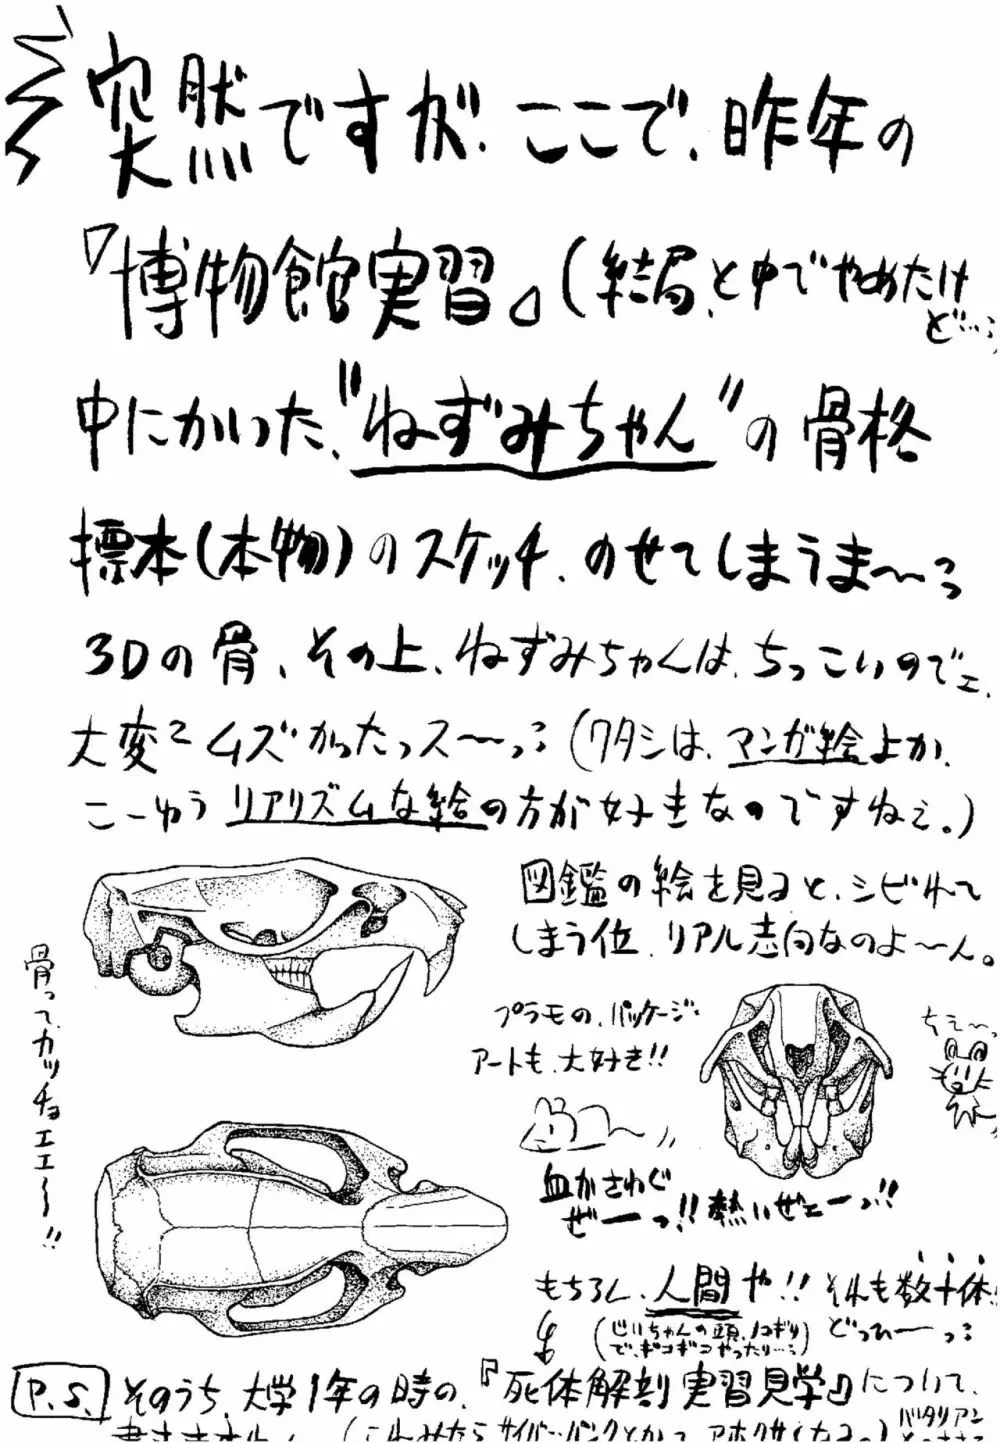 突然ですが、ここで、昨年の
『博物館実習』(結局、と中でやめたけ
ど…)
中にかいた、"ねずみちゃん"の骨格
標本(本物)のスケッチ、のせてしまうま〜っ
3Dの骨、その上、ねずみちゃんは、ちっこいのでェ、
大変でムズかったっス〜っ(ワタシは、マンガ絵よか、
こーゆうリアリズムな絵の方が好きなのですねぇ。)
図鑑の絵を見ると、シビれて
しまう位、リアル志向なのよ〜ん。
骨って、カッチョエエ〜!!
プラモの、パッケージ
アートも、大好き!!
ちえ〜っ
血がさわぐ
ぜーーっ!!熱いぜェーっ!!
もちろん、人間や!!それも数十体!!
(じいちゃんの頭、ノコギリ
で、ギコギコやったり…)
どっひーーっ
P.S. そのうち、大学1年の時の、『死体解剖実習見学』について、
バタリアン